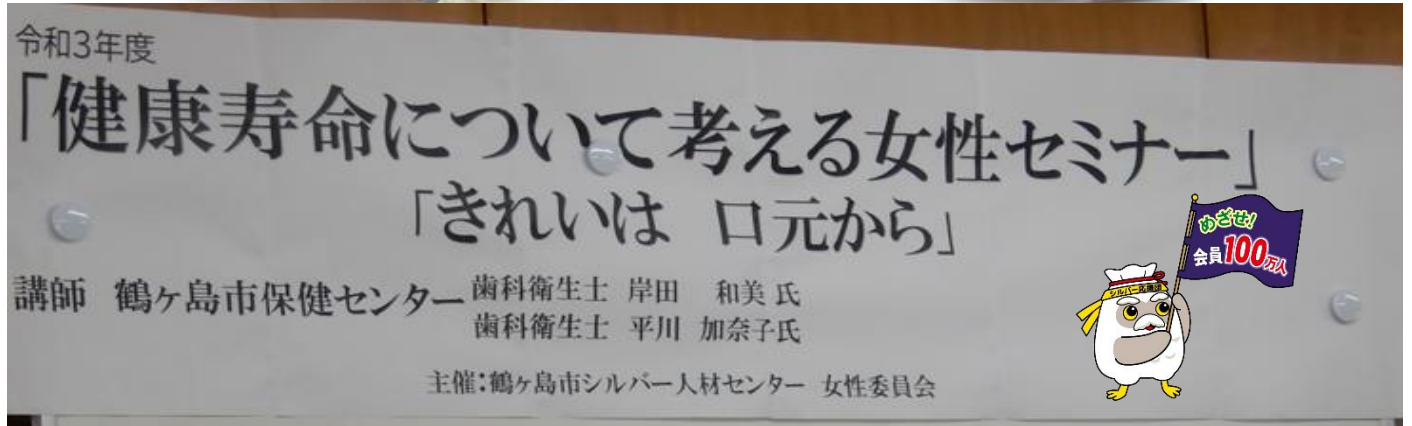 令和3年度
「健康寿命について考える女性セミナー」
「きれいは 口元から」
講師 鶴ヶ島市保健センター 歯科衛生士 岸田 和美 氏
歯科衛生士 平川 加奈子氏
主催:鶴ヶ島市シルバー人材センター 女性委員会
めざせ!
会員100万人
シルバー応援団